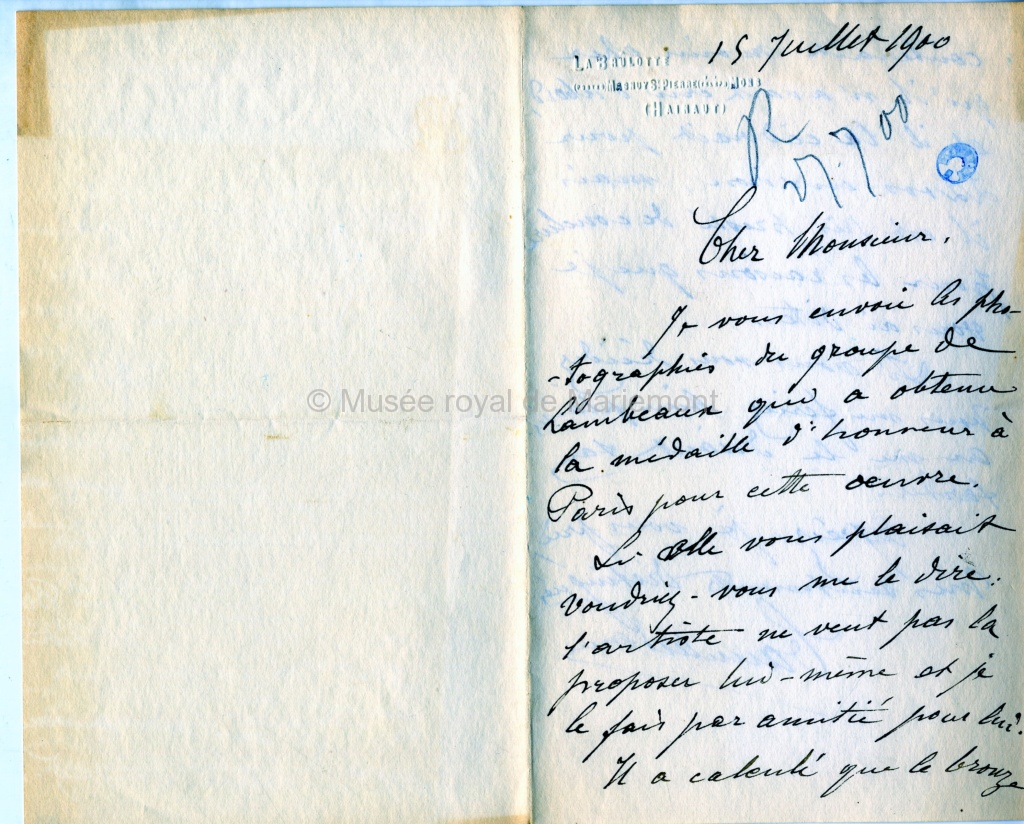 15 Juillet 1900
LA BRULOTTE
MAGNY ST PIERRE MONS
(HAINAUT)
R
17.7.00
Cher Monsieur,
Je vous envoie les pho-
-tographies du groupe de
Lambeaux qui a obtenu
la médaille d'honneur à
Paris pour cette oeuvre.
Si elle vous plaisait
voudriez-vous me le dire:
l'artiste ne veut pas la
proposer lui-même et je
le fais par amitié pour lui.
Il a calculé que le bronze
© Musée royal de Mariemont